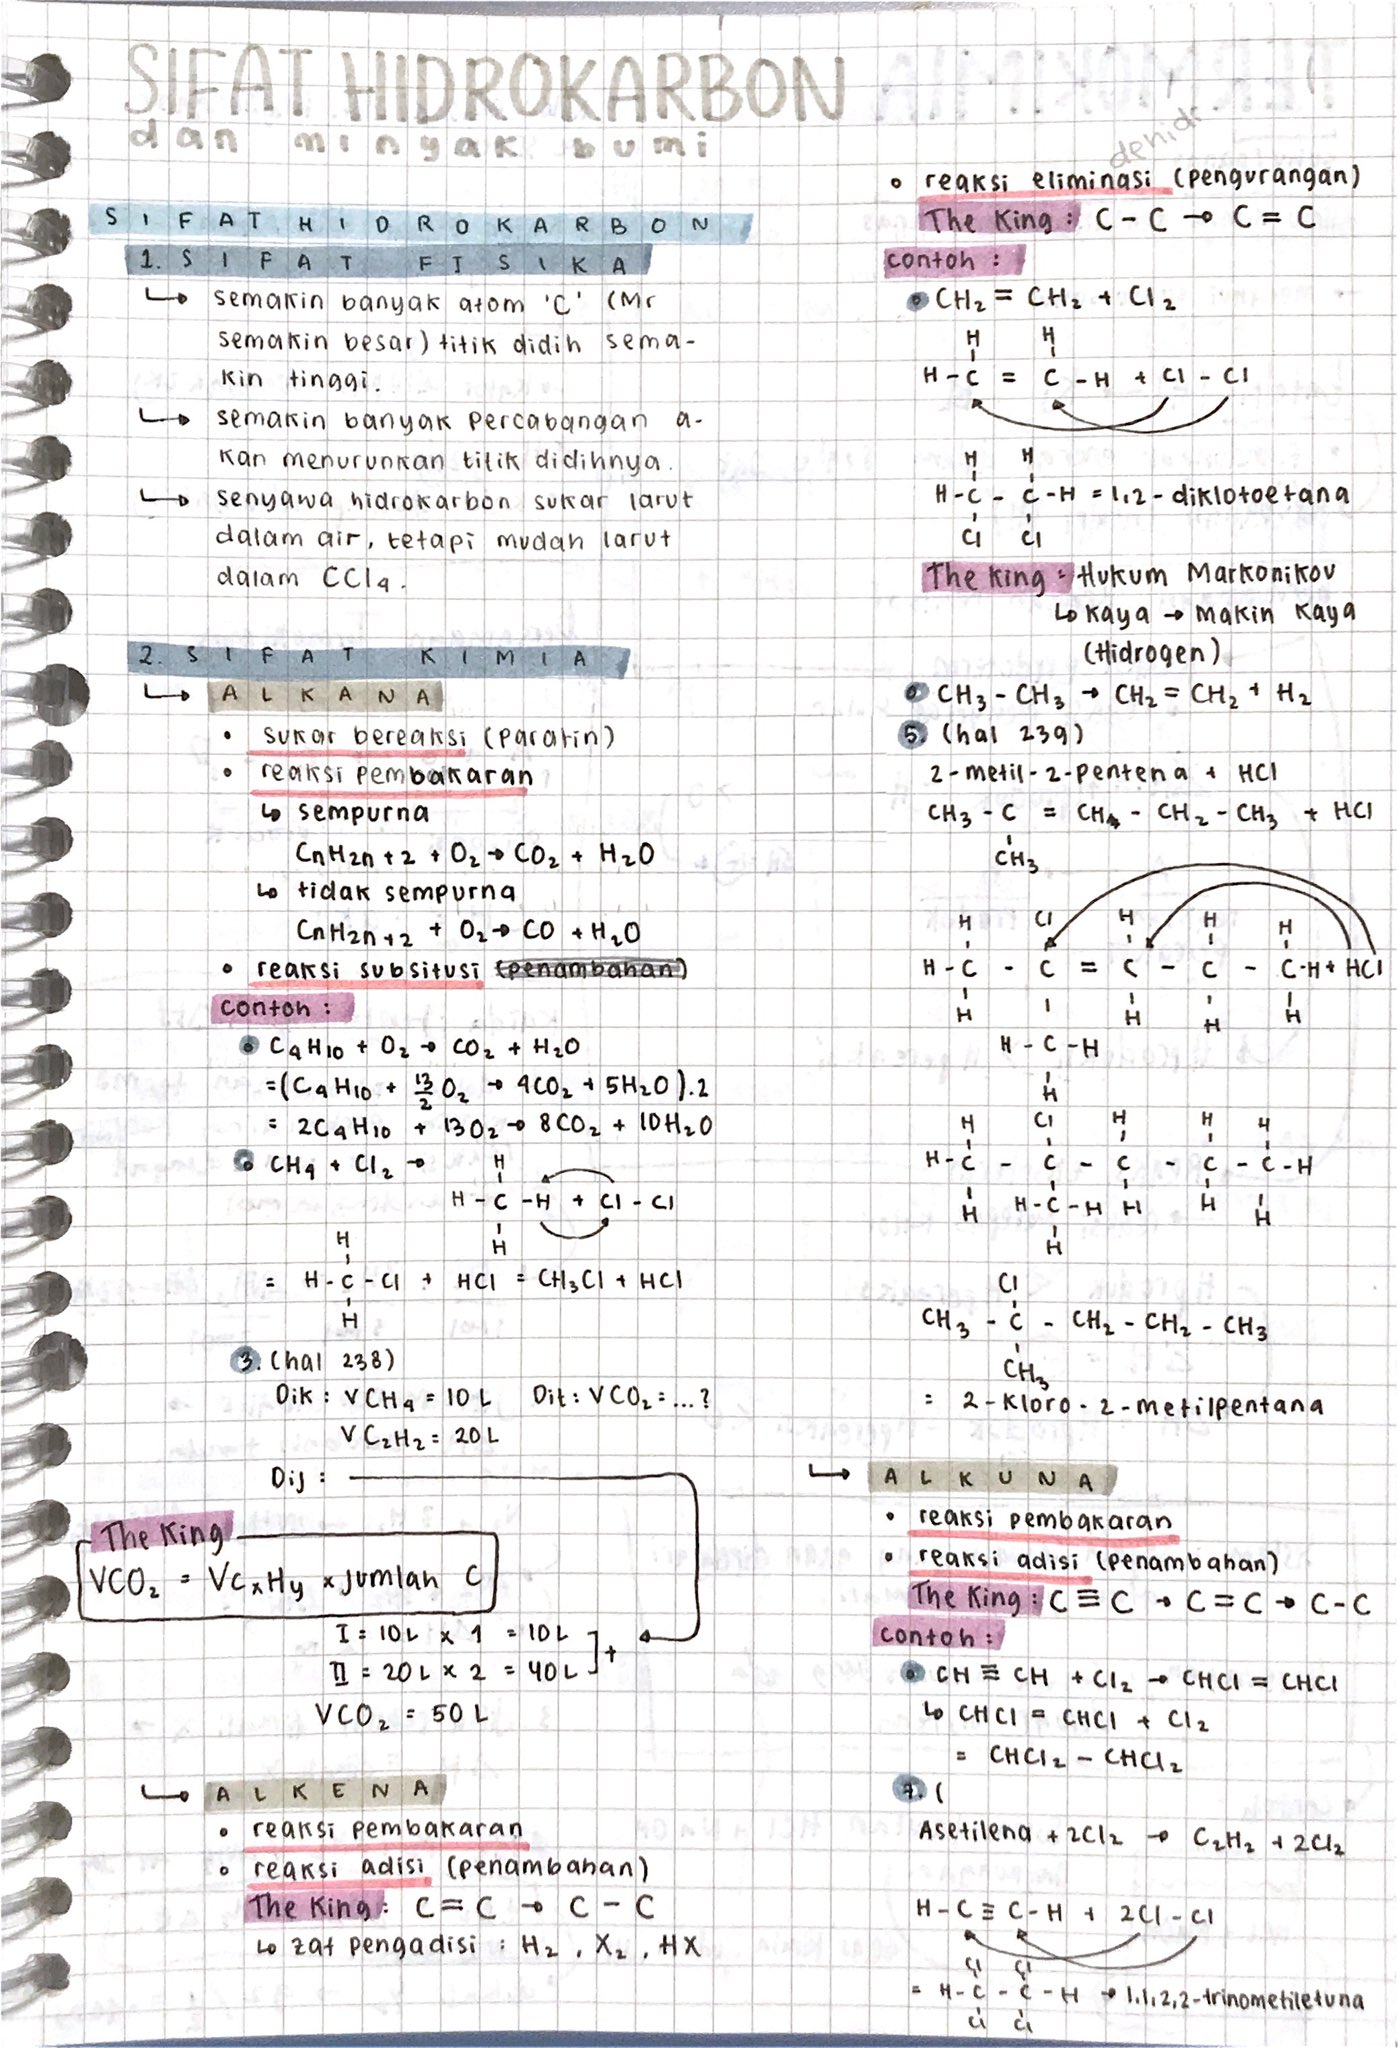 SIFAT HIDROKARBON
dan minyak bumi
SIFAT HIDROKARBON
1. SIFAT FISIKA
↳ semakin banyak atom 'C' (Mr
semakin besar) titik didih sema-
kin tinggi.
↳ semakin banyak percabangan a-
kan menurunkan titik didihnya.
↳ senyawa hidrokarbon sukar larut
dalam air, tetapi mudah larut
dalam CCl₄.
2. SIFAT KIMIA
↳ ALKANA
• sukar bereaksi (parafin)
• reaksi pembakaran
↳ sempurna
CnH2n+2 + O₂ → CO₂ + H₂O
↳ tidak sempurna
CnH2n+2 + O₂ → CO + H₂O
• reaksi subsitusi (penambahan)
contoh :
• C₄H₁₀ + O₂ → CO₂ + H₂O
= (C₄H₁₀ + 13/2 O₂ → 4CO₂ + 5H₂O).2
= 2C₄H₁₀ + 13O₂ → 8CO₂ + 10H₂O
• CH₄ + Cl₂ →
H
H - C - H + Cl - Cl
H
H
= H - C - Cl + HCl = CH₃Cl + HCl
H
3. (hal 238)
Dik : VCH₄ = 10 L Dit : VCO₂ = ...?
VC₂H₂ = 20 L
Dij :
The King
VCO₂ = VCxHy × jumlah C
I = 10 L × 1 = 10 L
II = 20 L × 2 = 40 L
+
VCO₂ = 50 L
↳ ALKENA
• reaksi pembakaran
• reaksi adisi (penambahan)
The King : C = C → C - C
↳ zat pengadisi : H₂ , X₂ , HX
dehidr
• reaksi eliminasi (pengurangan)
The King : C - C → C = C
contoh :
• CH₂ = CH₂ + Cl₂
H H
H - C = C - H + Cl - Cl
H H
H - C - C - H = 1,2 - diklotoetana
Cl Cl
The King : Hukum Markonikov
↳ kaya → makin kaya
(Hidrogen)
• CH₃ - CH₃ → CH₂ = CH₂ + H₂
5. (hal 239)
2-metil-2-pentena + HCl
CH₃ - C = CH - CH₂ - CH₃ + HCl
CH₃
H Cl H H H
H - C - C = C - C - C - H + HCl
H H H H
H - C - H
H
H Cl H H H
H - C - C - C - C - C - H
H H - C - H H H H
H
Cl
CH₃ - C - CH₂ - CH₂ - CH₃
CH₃
= 2-kloro-2-metilpentana
↳ ALKUNA
• reaksi pembakaran
• reaksi adisi (penambahan)
The King : C ≡ C → C = C → C - C
contoh :
• CH ≡ CH + Cl₂ → CHCl = CHCl
↳ CHCl = CHCl + Cl₂
= CHCl₂ - CHCl₂
7. (
Asetilena + 2Cl₂ → C₂H₂ + 2Cl₂
H - C ≡ C - H + 2Cl - Cl
Cl Cl
= H - C - C - H → 1,1,2,2-trinometiletuna
Cl Cl